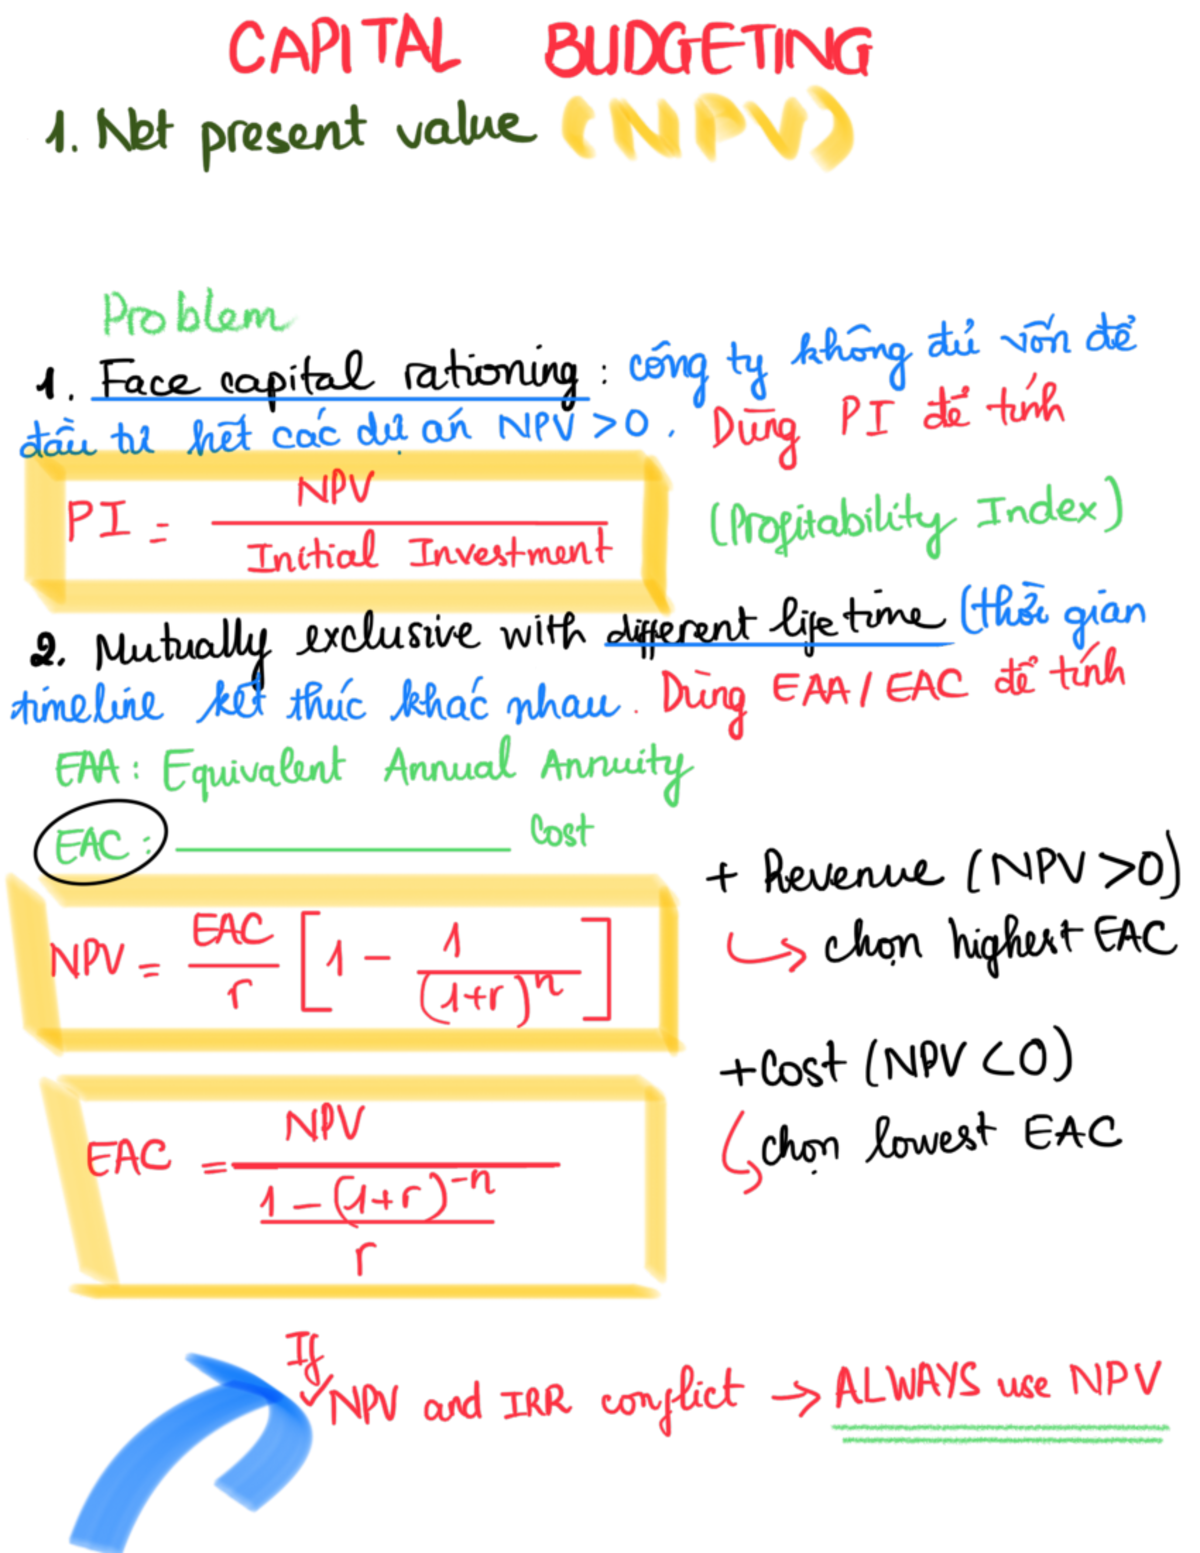 CAPITAL BUDGETING
1. Net present value (NPV)
Problem
1. Face capital rationing : công ty không đủ vốn để
đầu tư hết các dự án NPV > 0 . Dùng PI để tính
PI = NPV / Initial Investment
(Profitability Index)
2. Mutually exclusive with different life time (thời gian
timeline kết thúc khác nhau . Dùng EAA / EAC để tính
EAA : Equivalent Annual Annuity
EAC : ________ Cost
NPV = EAC / r [ 1 - 1 / (1+r)^n ]
+ Revenue (NPV > 0)
↳ chọn highest EAC
+ Cost (NPV < 0)
↳ chọn lowest EAC
EAC = NPV / ((1 - (1+r)^-n) / r)
If
✓ NPV and IRR conflict → ALWAYS use NPV